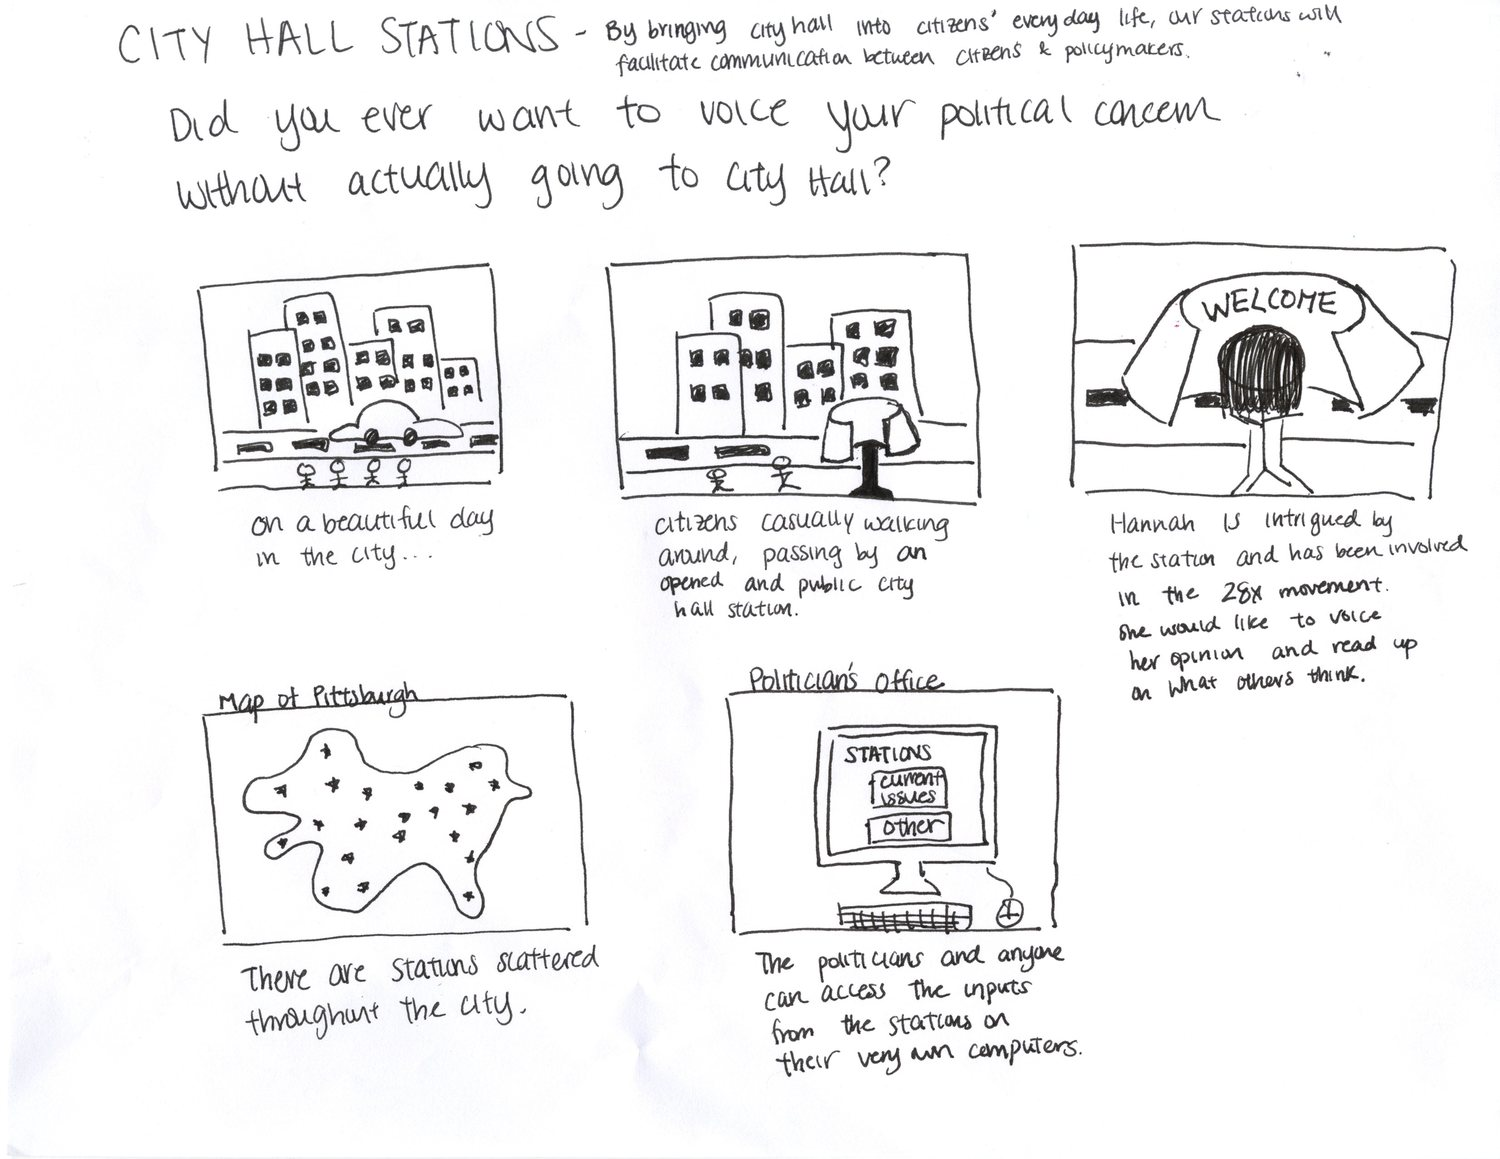 CITY HALL STATIONS - By bringing city hall into citizens' everyday life, our stations will
facilitate communication between citizens & policymakers.
Did you ever want to voice your political concern
without actually going to City Hall?
on a beautiful day
in the city...
citizens casually walking
around, passing by an
opened and public city
hall station.
WELCOME
Hannah is intrigued by
the station and has been involved
in the 28x movement.
she would like to voice
her opinion and read up
on what others think.
Map of Pittsburgh
There are stations scattered
throughout the city.
Politician's Office
STATIONS
current
issues
other
The politicians and anyone
can access the inputs
from the stations on
their very own computers.